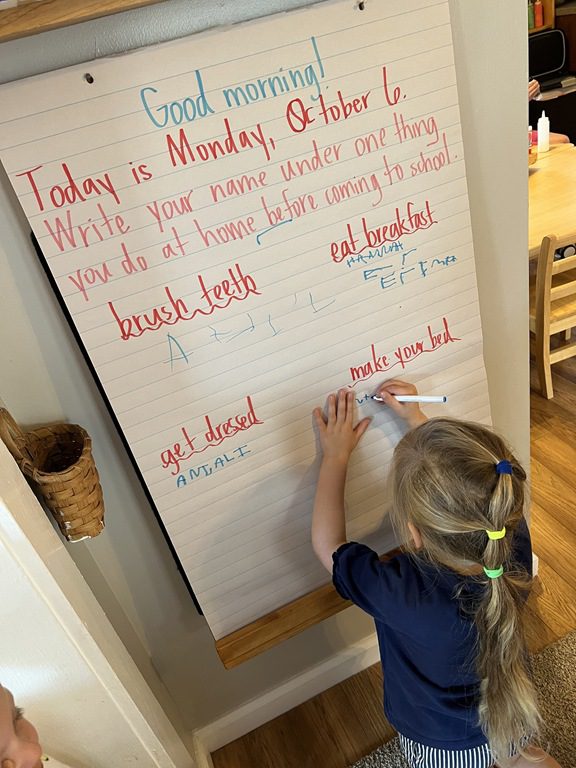 Good morning!
Today is Monday, October 6.
Write your name under one thing
you do at home before coming to school.
eat breakfast
HANNAH
brush teeth
make your bed
get dressed
ANJALI